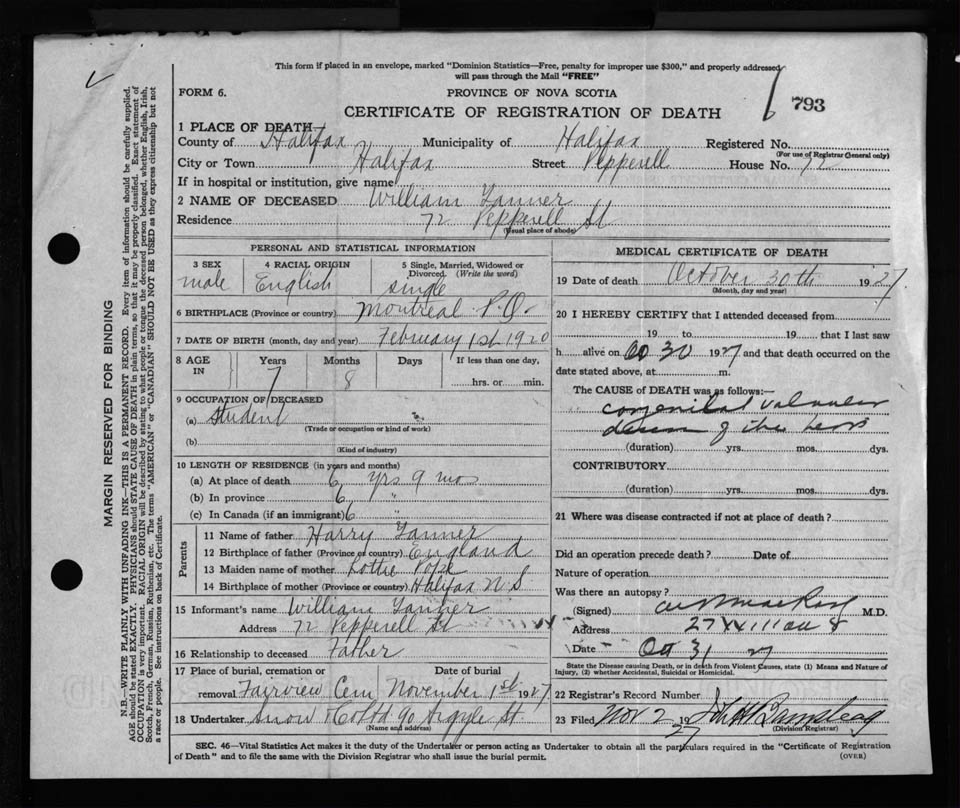 This form if placed in an envelope, marked "Dominion Statistics—Free, penalty for improper use $300," and properly addressed
will pass through the Mail "FREE"
FORM 6.
PROVINCE OF NOVA SCOTIA
CERTIFICATE OF REGISTRATION OF DEATH
793
1 PLACE OF DEATH—
County of Halifax Municipality of Halifax Registered No.
(For use of Registrar General only)
City or Town Halifax Street Pepperell House No. 72
If in hospital or institution, give name
2 NAME OF DECEASED William Tanner
Residence 72 Pepperell St
(Usual place of abode)
PERSONAL AND STATISTICAL INFORMATION
3 SEX male
4 RACIAL ORIGIN English
5 Single, Married, Widowed or Divorced. (Write the word) single
6 BIRTHPLACE (Province or country) Montreal P.Q.
7 DATE OF BIRTH (month, day and year) February 1st 1920
8 AGE IN Years Months Days If less than one day,
7 8 hrs. or min.
9 OCCUPATION OF DECEASED
(a) Student
(Trade or occupation or kind of work)
(b)
(Kind of industry)
10 LENGTH OF RESIDENCE (in years and months)
(a) At place of death 6 yrs 9 mo
(b) In province 6 "
(c) In Canada (if an immigrant) 6
Parents
11 Name of father Harry Tanner
12 Birthplace of father (Province or country) England
13 Maiden name of mother Lottie Pope
14 Birthplace of mother (Province or country) Halifax N.S
15 Informant's name William Tanner
Address 72 Pepperell St
16 Relationship to deceased Father
17 Place of burial, cremation or removal Fairview Cem
Date of burial November 1st 1927
18 Undertaker Snow & Co Ltd 90 Argyle St.
(Name and address)
MEDICAL CERTIFICATE OF DEATH
19 Date of death October 30th 1927
(Month, day and year)
20 I HEREBY CERTIFY that I attended deceased from
19 to 19 that I last saw
h alive on Oct 30 1927 and that death occurred on the
date stated above, at m.
The CAUSE of DEATH was as follows:—
congenital valvular
disease of the heart
(duration) yrs. mos. dys.
CONTRIBUTORY
(duration) yrs. mos. dys.
21 Where was disease contracted if not at place of death?
Did an operation precede death? Date of
Nature of operation
Was there an autopsy?
(Signed) M.D.
Address 27
Date Oct 31 27
State the Disease causing Death, or in death from Violent Causes, state (1) Means and Nature of
Injury, (2) whether Accidental, Suicidal or Homicidal.
22 Registrar's Record Number
23 Filed Nov 2 1927
(Division Registrar)
SEC. 46—Vital Statistics Act makes it the duty of the Undertaker or person acting as Undertaker to obtain all the particulars required in the "Certificate of Registration
of Death" and to file the same with the Division Registrar who shall issue the burial permit.
(OVER)
MARGIN RESERVED FOR BINDING
N.B.—WRITE PLAINLY WITH UNFADING INK—THIS IS A PERMANENT RECORD. Every item of information should be carefully supplied.
AGE should be stated EXACTLY. PHYSICIANS should STATE CAUSE OF DEATH in plain terms, so that it may be properly classified. Exact statement of
OCCUPATION is very important. RACIAL ORIGIN will be described by stating to what people or tongue the deceased person belonged, whether English, Irish,
Scotch, French, German, Russian, Ruthenian, etc. The terms "AMERICAN" or "CANADIAN" SHOULD NOT BE USED as they express citizenship but not
a race or people. See instructions on back of Certificate.